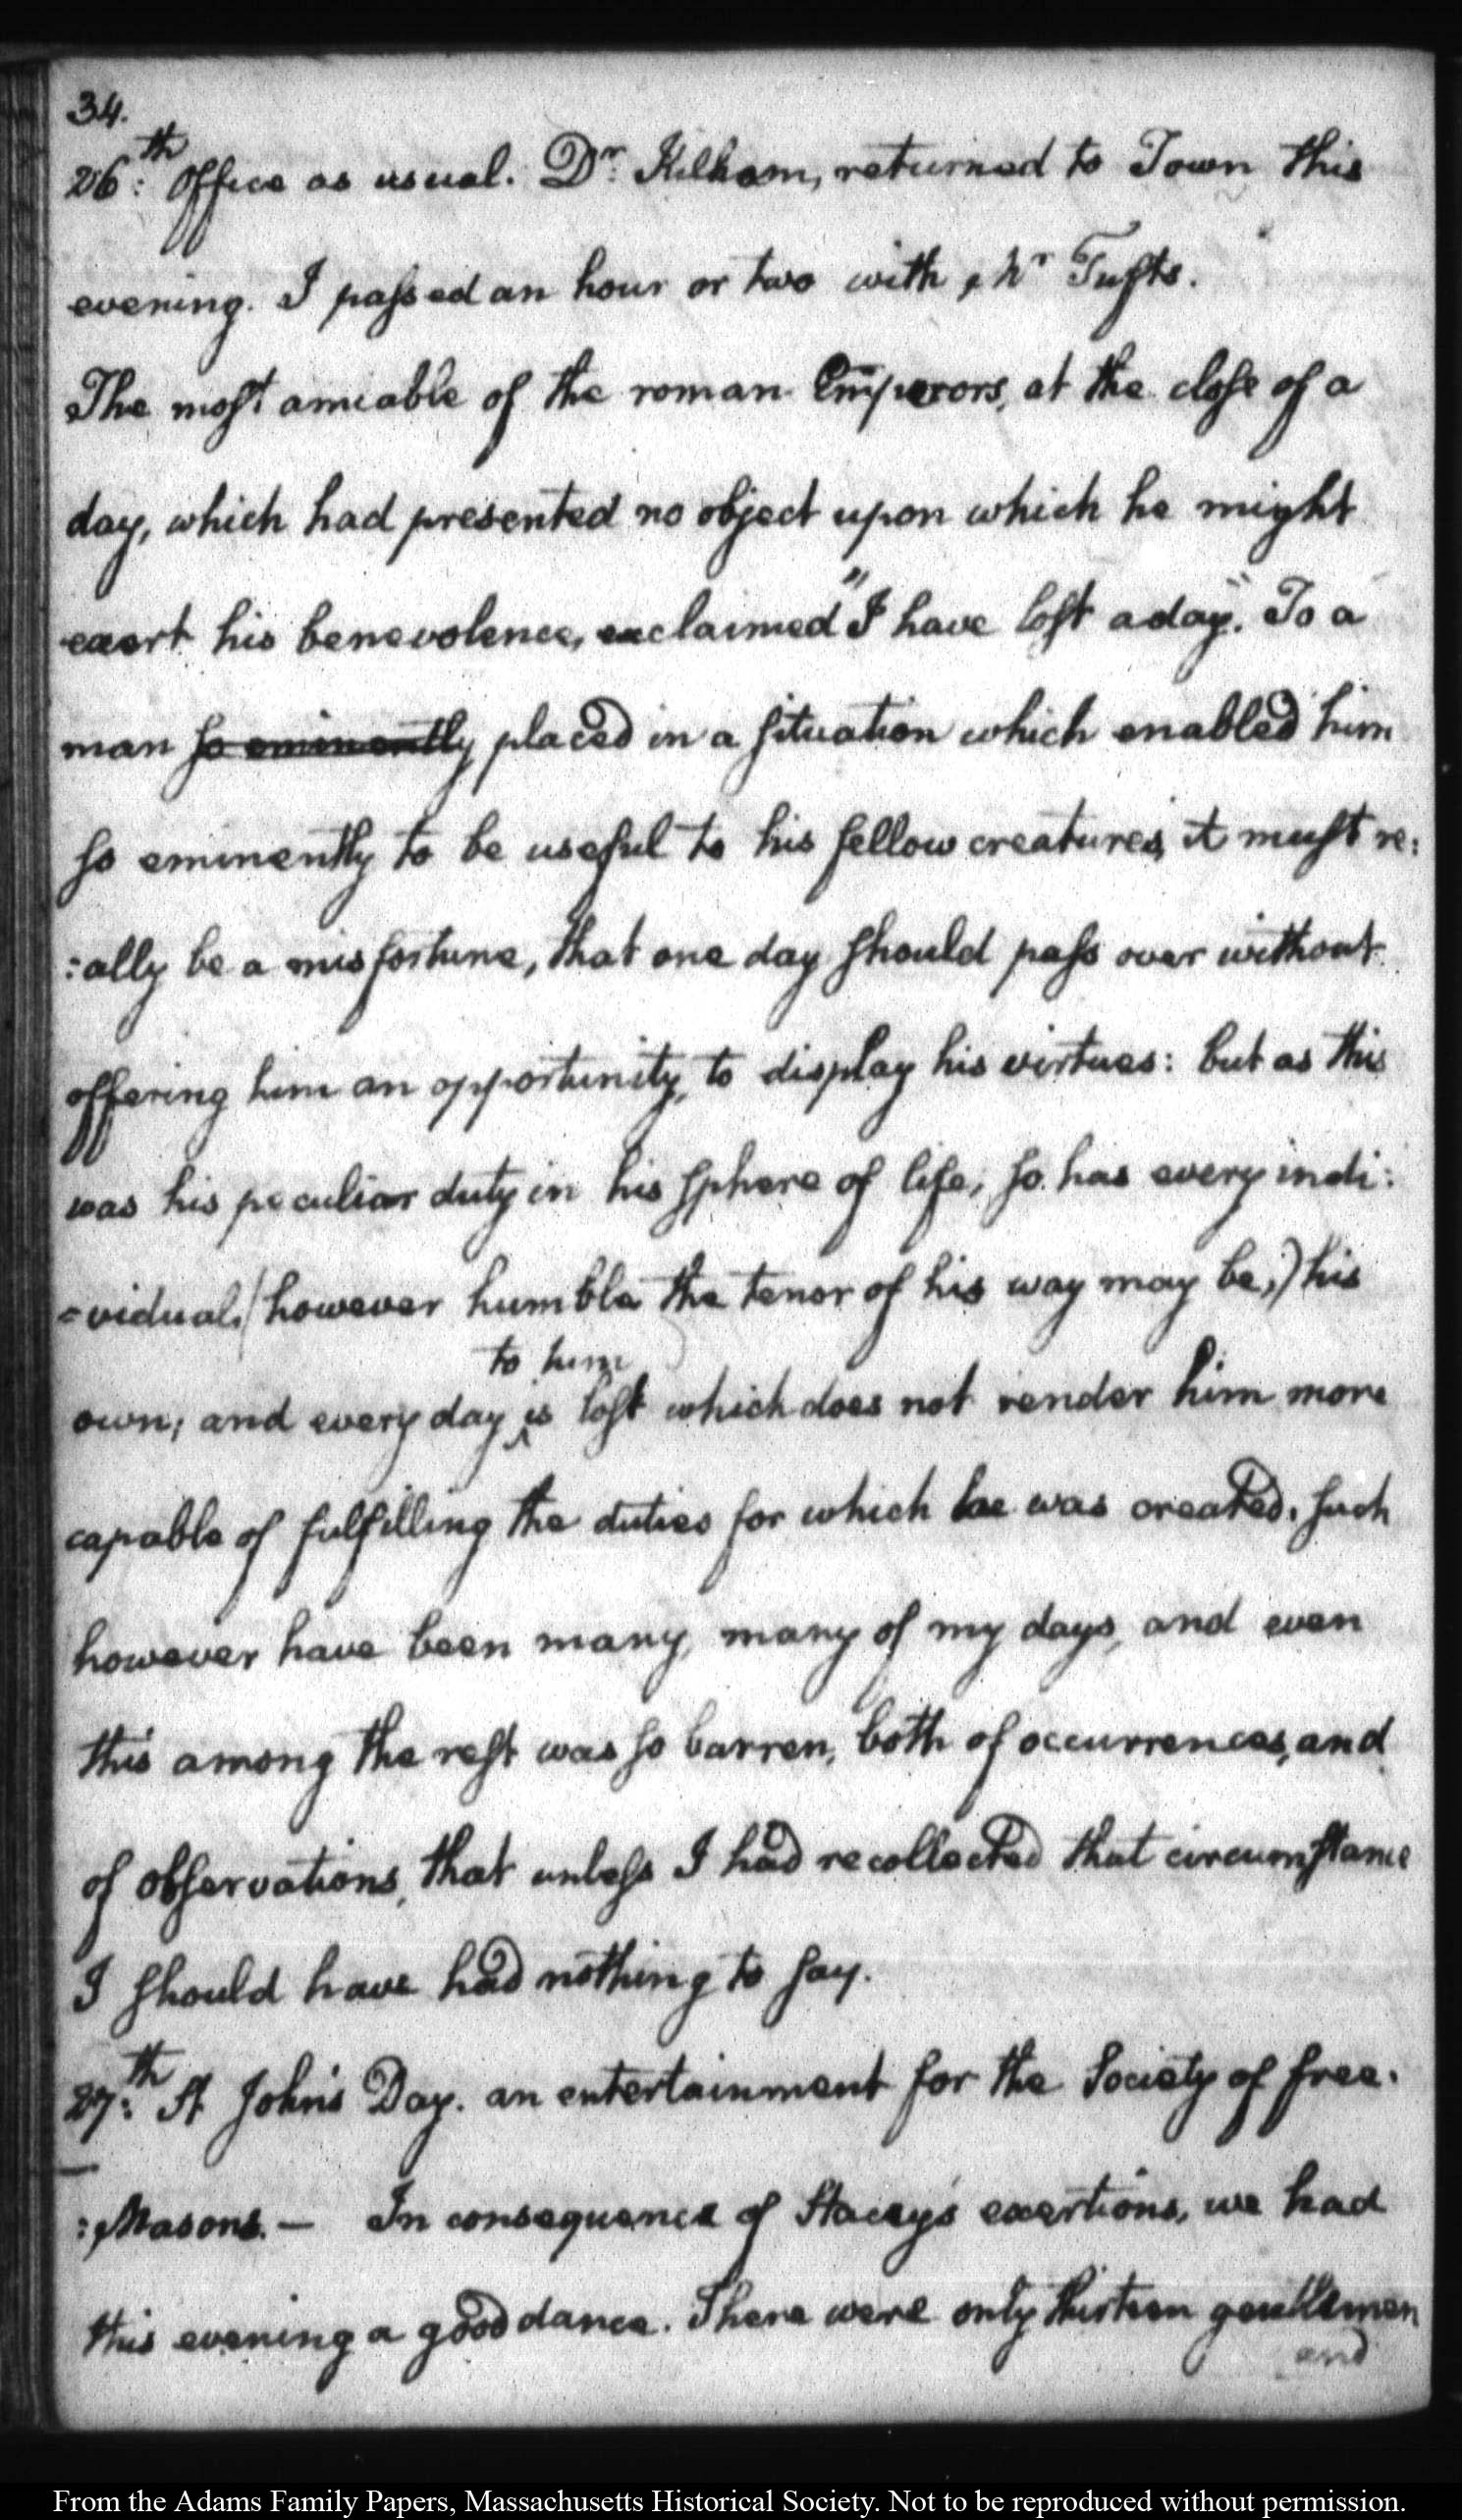 34.
26:th Office as usual. Dr. Kilham, returned to Town this
evening. I passed an hour or two with Mr Tufts.
The most amiable of the roman Emperors, at the close of a
day, which had presented no object upon which he might
exert his benevolence, exclaimed "I have lost a day". To a
man so eminently placed in a situation which enabled him
so eminently to be useful to his fellow creatures, it must re:
:ally be a misfortune, that one day should pass over without
offering him an opportunity, to display his virtues: but as this
was his peculiar duty in his sphere of life, so has every indi:
=vidual, (however humble the tenor of his way may be,) his
to him
own; and every day ^ is lost which does not render him more
capable of fulfilling the duties for which he was created. such
however have been many, many of my days, and even
this among the rest was so barren, both of occurrences, and
of observations, that unless I had recollected that circumstance
I should have had nothing to say.
27:th St John's Day. an entertainment for the Society of free.
:Masons. — In consequence of Stacey's exertions, we had
this evening a good dance. There were only thirteen gentlemen
and
From the Adams Family Papers, Massachusetts Historical Society. Not to be reproduced without permission.